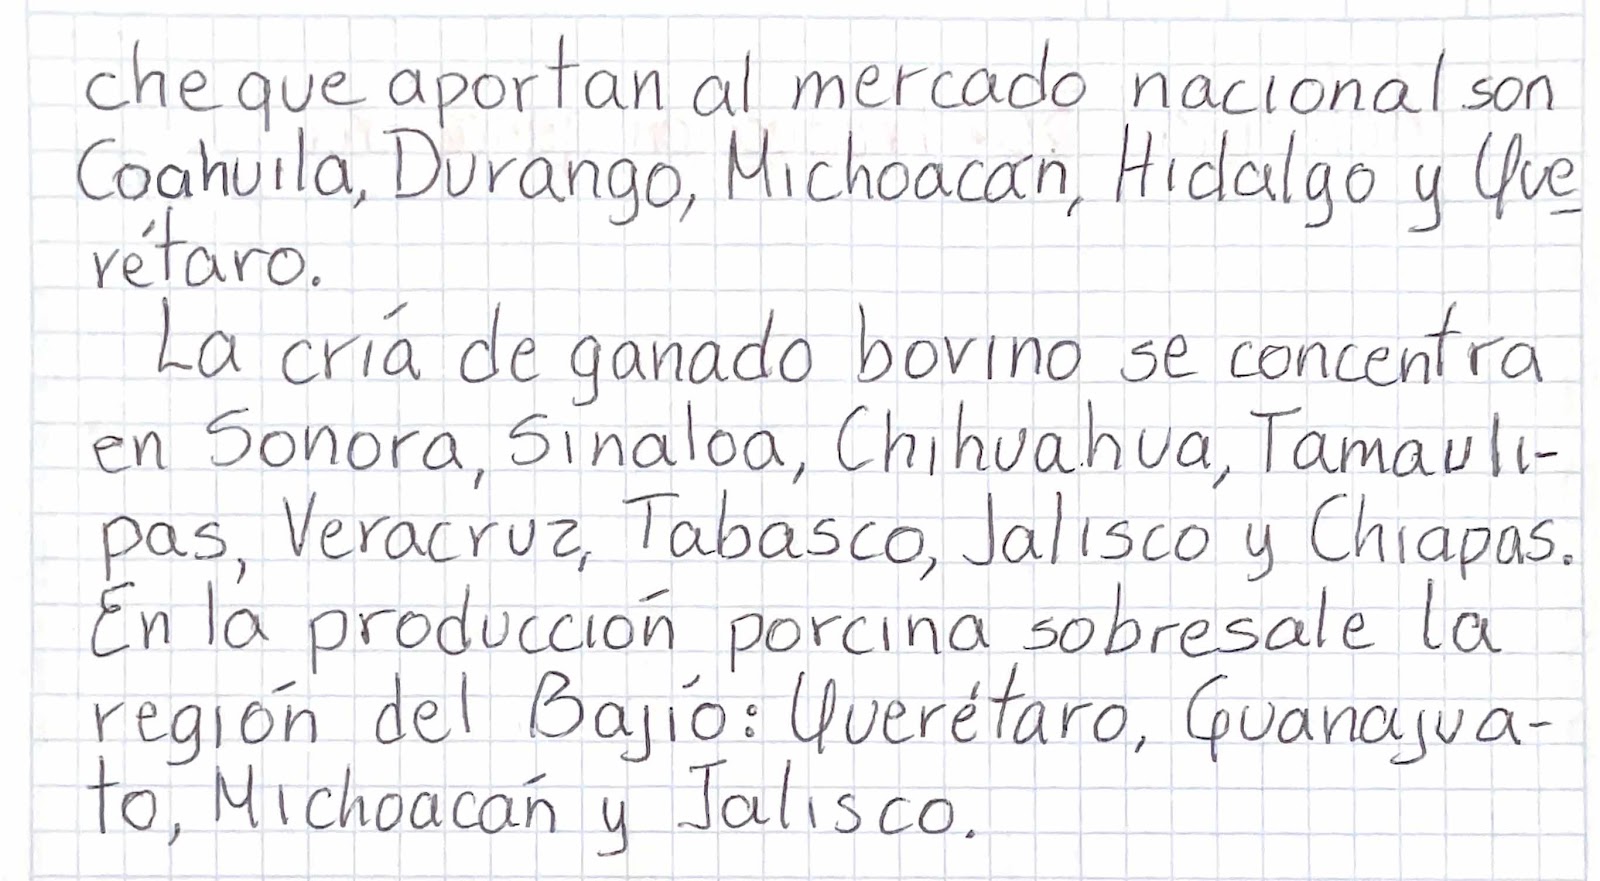 che que aportan al mercado nacional son
Coahuila, Durango, Michoacán, Hidalgo y Que
rétaro.
La cría de ganado bovino se concentra
en Sonora, Sinaloa, Chihuahua, Tamauli-
pas, Veracruz, Tabasco, Jalisco y Chiapas.
En la producción porcina sobresale la
región del Bajío: Querétaro, Guanajua-
to, Michoacán y Jalisco.